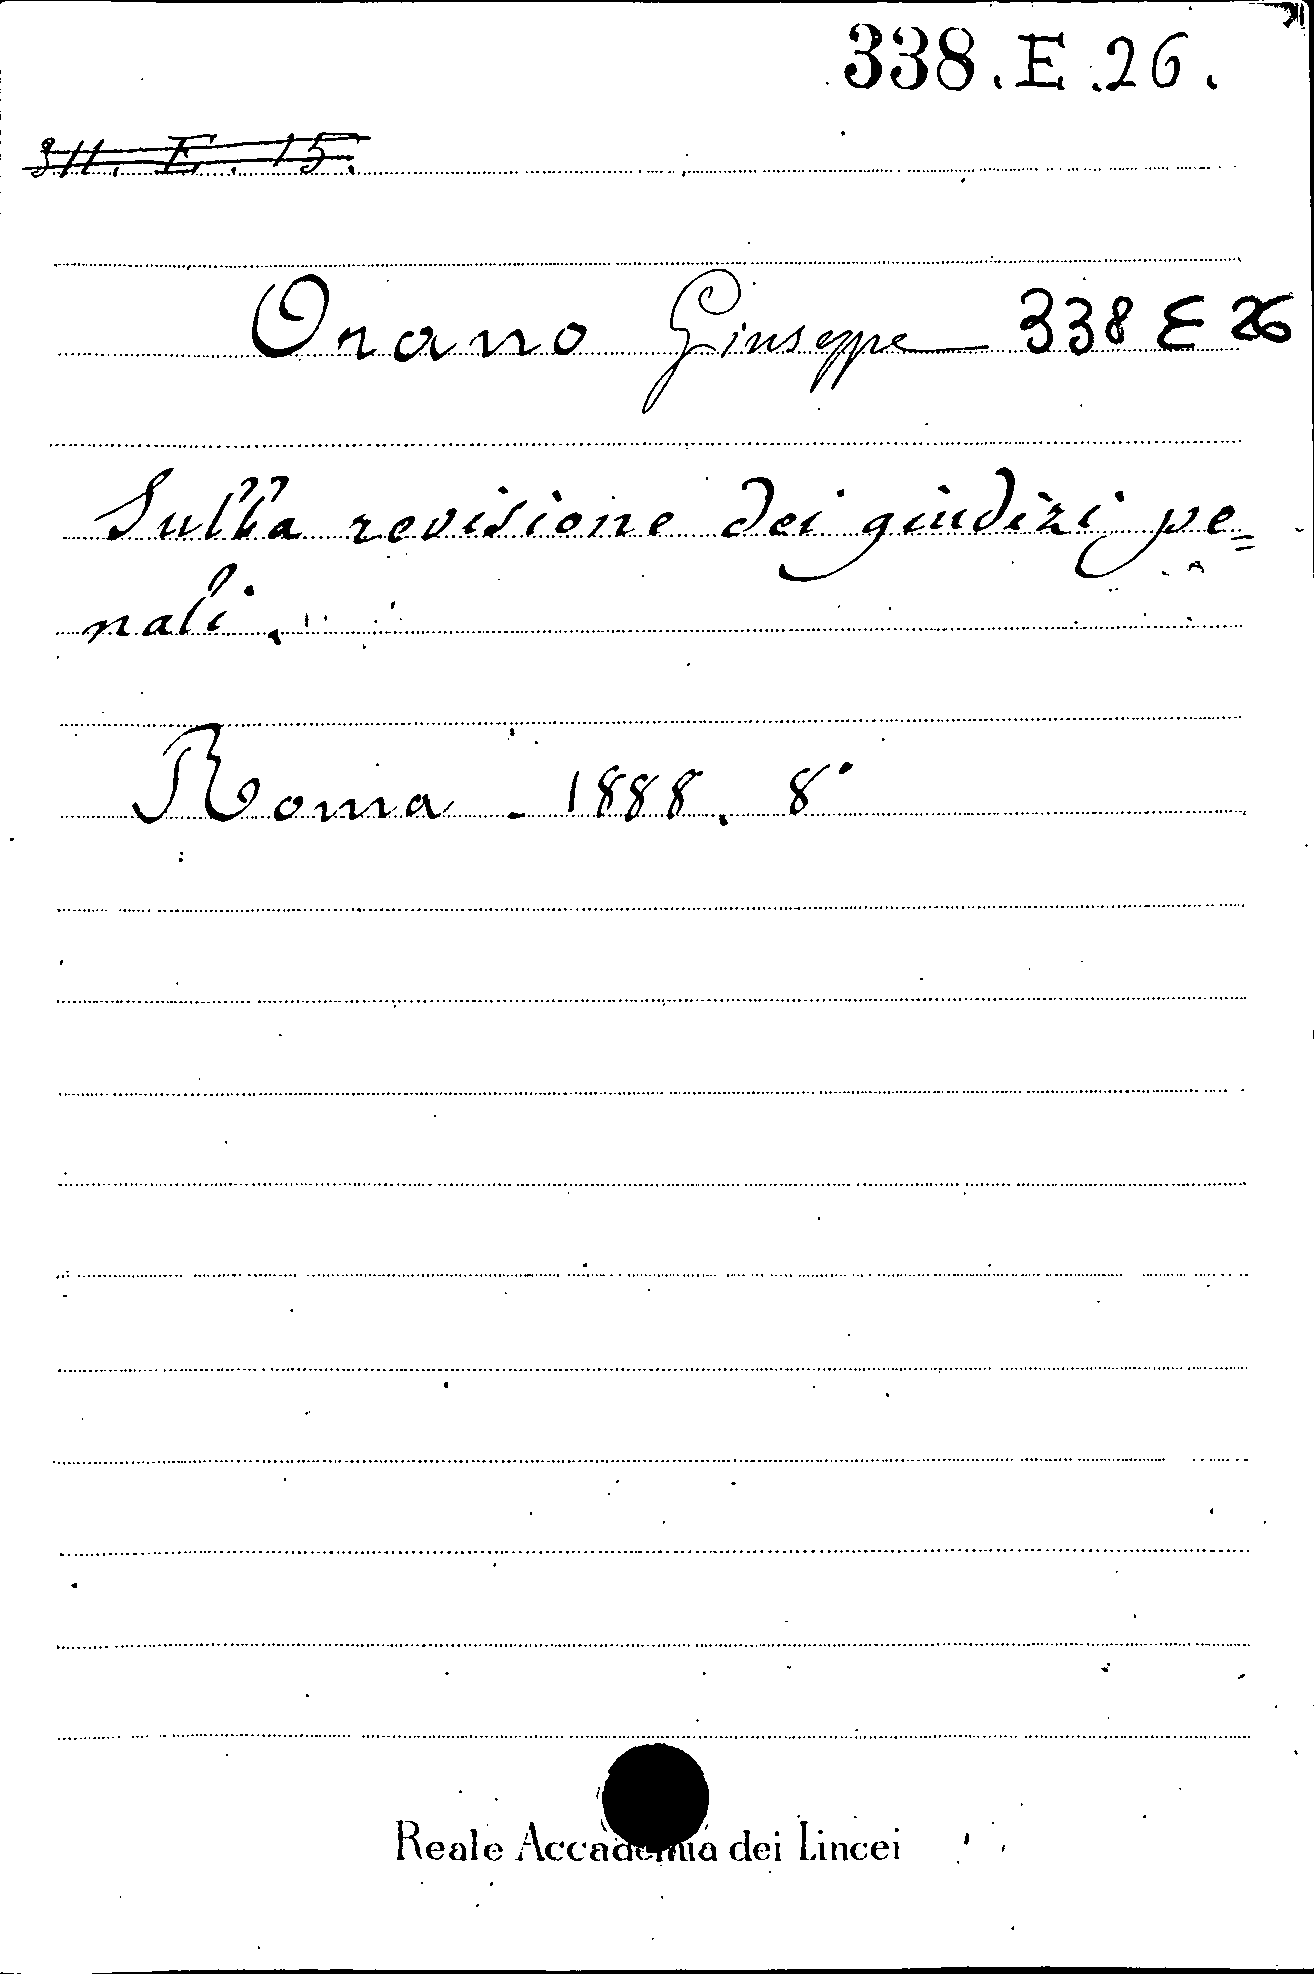 338.E.26.
311. E. 15.
Orano Giuseppe 338 E 26
Sulla revisione dei giudizi pe=
nali.
Roma - 1888. 8°
Reale Accademia dei Lincei